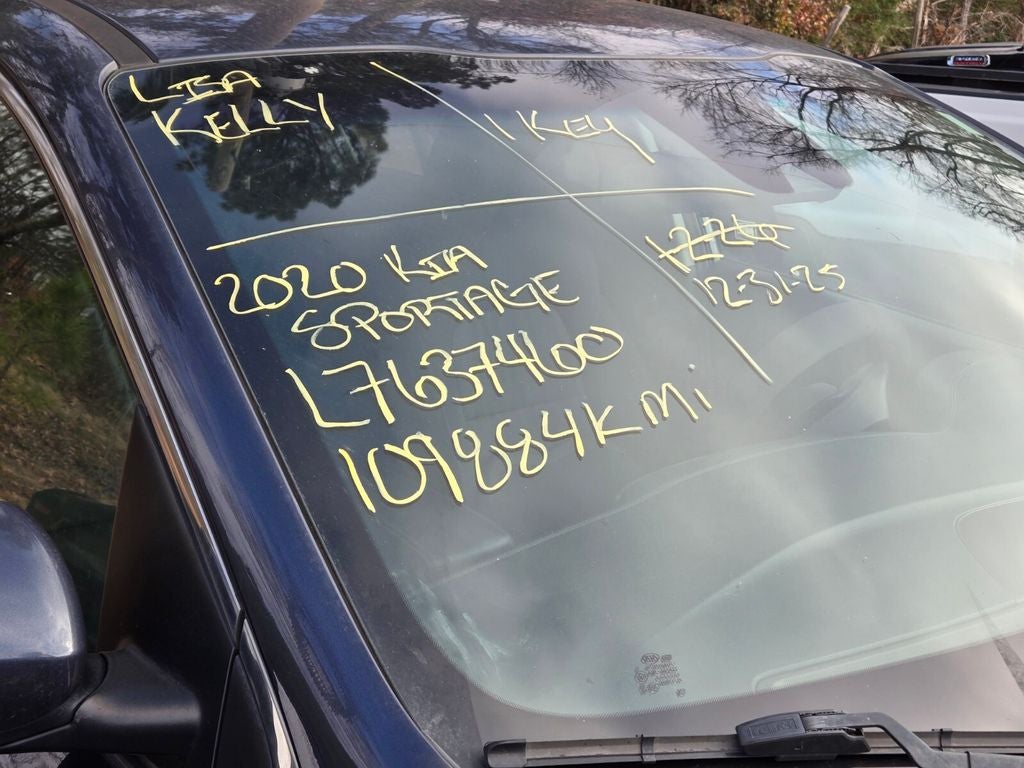 LISA
KELLY
1 KEY
2020 KIA
SPORTAGE
L7637460
109884K Mi
12-26
12-31-25